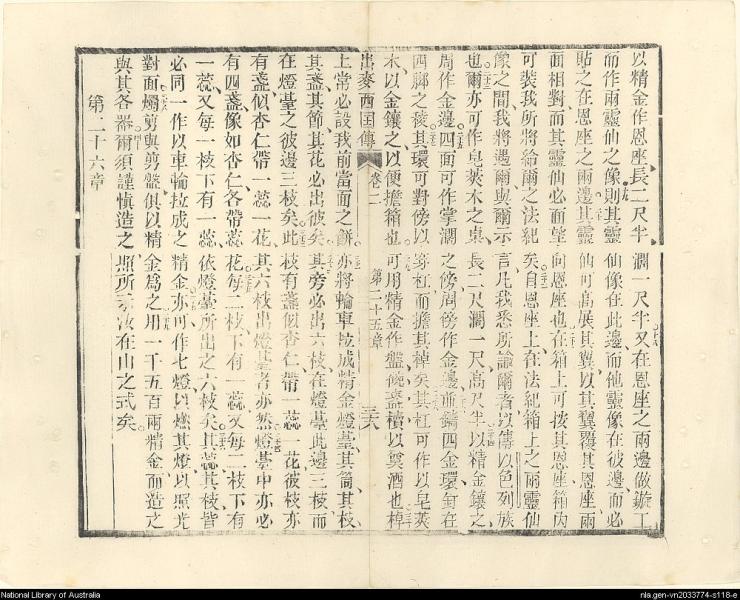 以精金作恩座、長二尺半、濶一尺半、又在恩座之兩邊做鏇工
而作兩靈仙之像、則其靈仙像在此邊、而他靈像在彼邊、而必
貼之在恩座之兩邊、其靈仙可高展其翼、以其翼覆其恩座、兩
面相對、而其靈仙必面望向恩座也、在箱上可按其恩座、箱内
可裝我所將給爾之法紀矣、自恩座上、在法紀箱上之兩靈仙
像之間、我將遇爾與爾示言、凡我悉所諭爾者、以傳以色列族
也、爾亦可作皂莢木之桌、長二尺、濶一尺、高尺半、以精金鑲之、
周作金邊、四面可作掌濶之傍、周傍作金邊、而鑄四金環、釘在
四脚之稜、其環可對傍、以穿杠而擔其棹矣、其杠可作以皂莢
木、以金鑲之、以便擔箱也、可用精金作盤碗盃以奠酒也、棹
出麥西国傳 卷二 第二十五章 三六
上常必設我前當面之餅、亦將輪車拉成精金燈臺、其筒、其枝、
其盞、其節、其花、必出彼矣、其旁必出六枝、在燈臺此邊三枝、而
在燈臺之彼邊三枝矣、此枝有盞似杏仁、帶一蕊一花、彼枝亦
有盞似杏仁、帶一蕊一花、其六枝出燈臺者亦然、燈臺中亦必
有四盞像如杏仁、各帶蕊花、每二枝下有一蕊、又每二枝下有
一蕊、又每一枝下有一蕊、依燈臺所出之六枝矣、其蕊其枝、皆
必同一作、以車輪拉成之精金、亦可作七燈、以燃其燈、以照光
對面、燭剪與剪盤俱以精金爲之、用一千五百兩精金而造之
與其各器、爾須謹慎造之、照所示汝在山之式矣、
第二十六章
National Library of Australia
nla.gen-vn2033774-s118-e